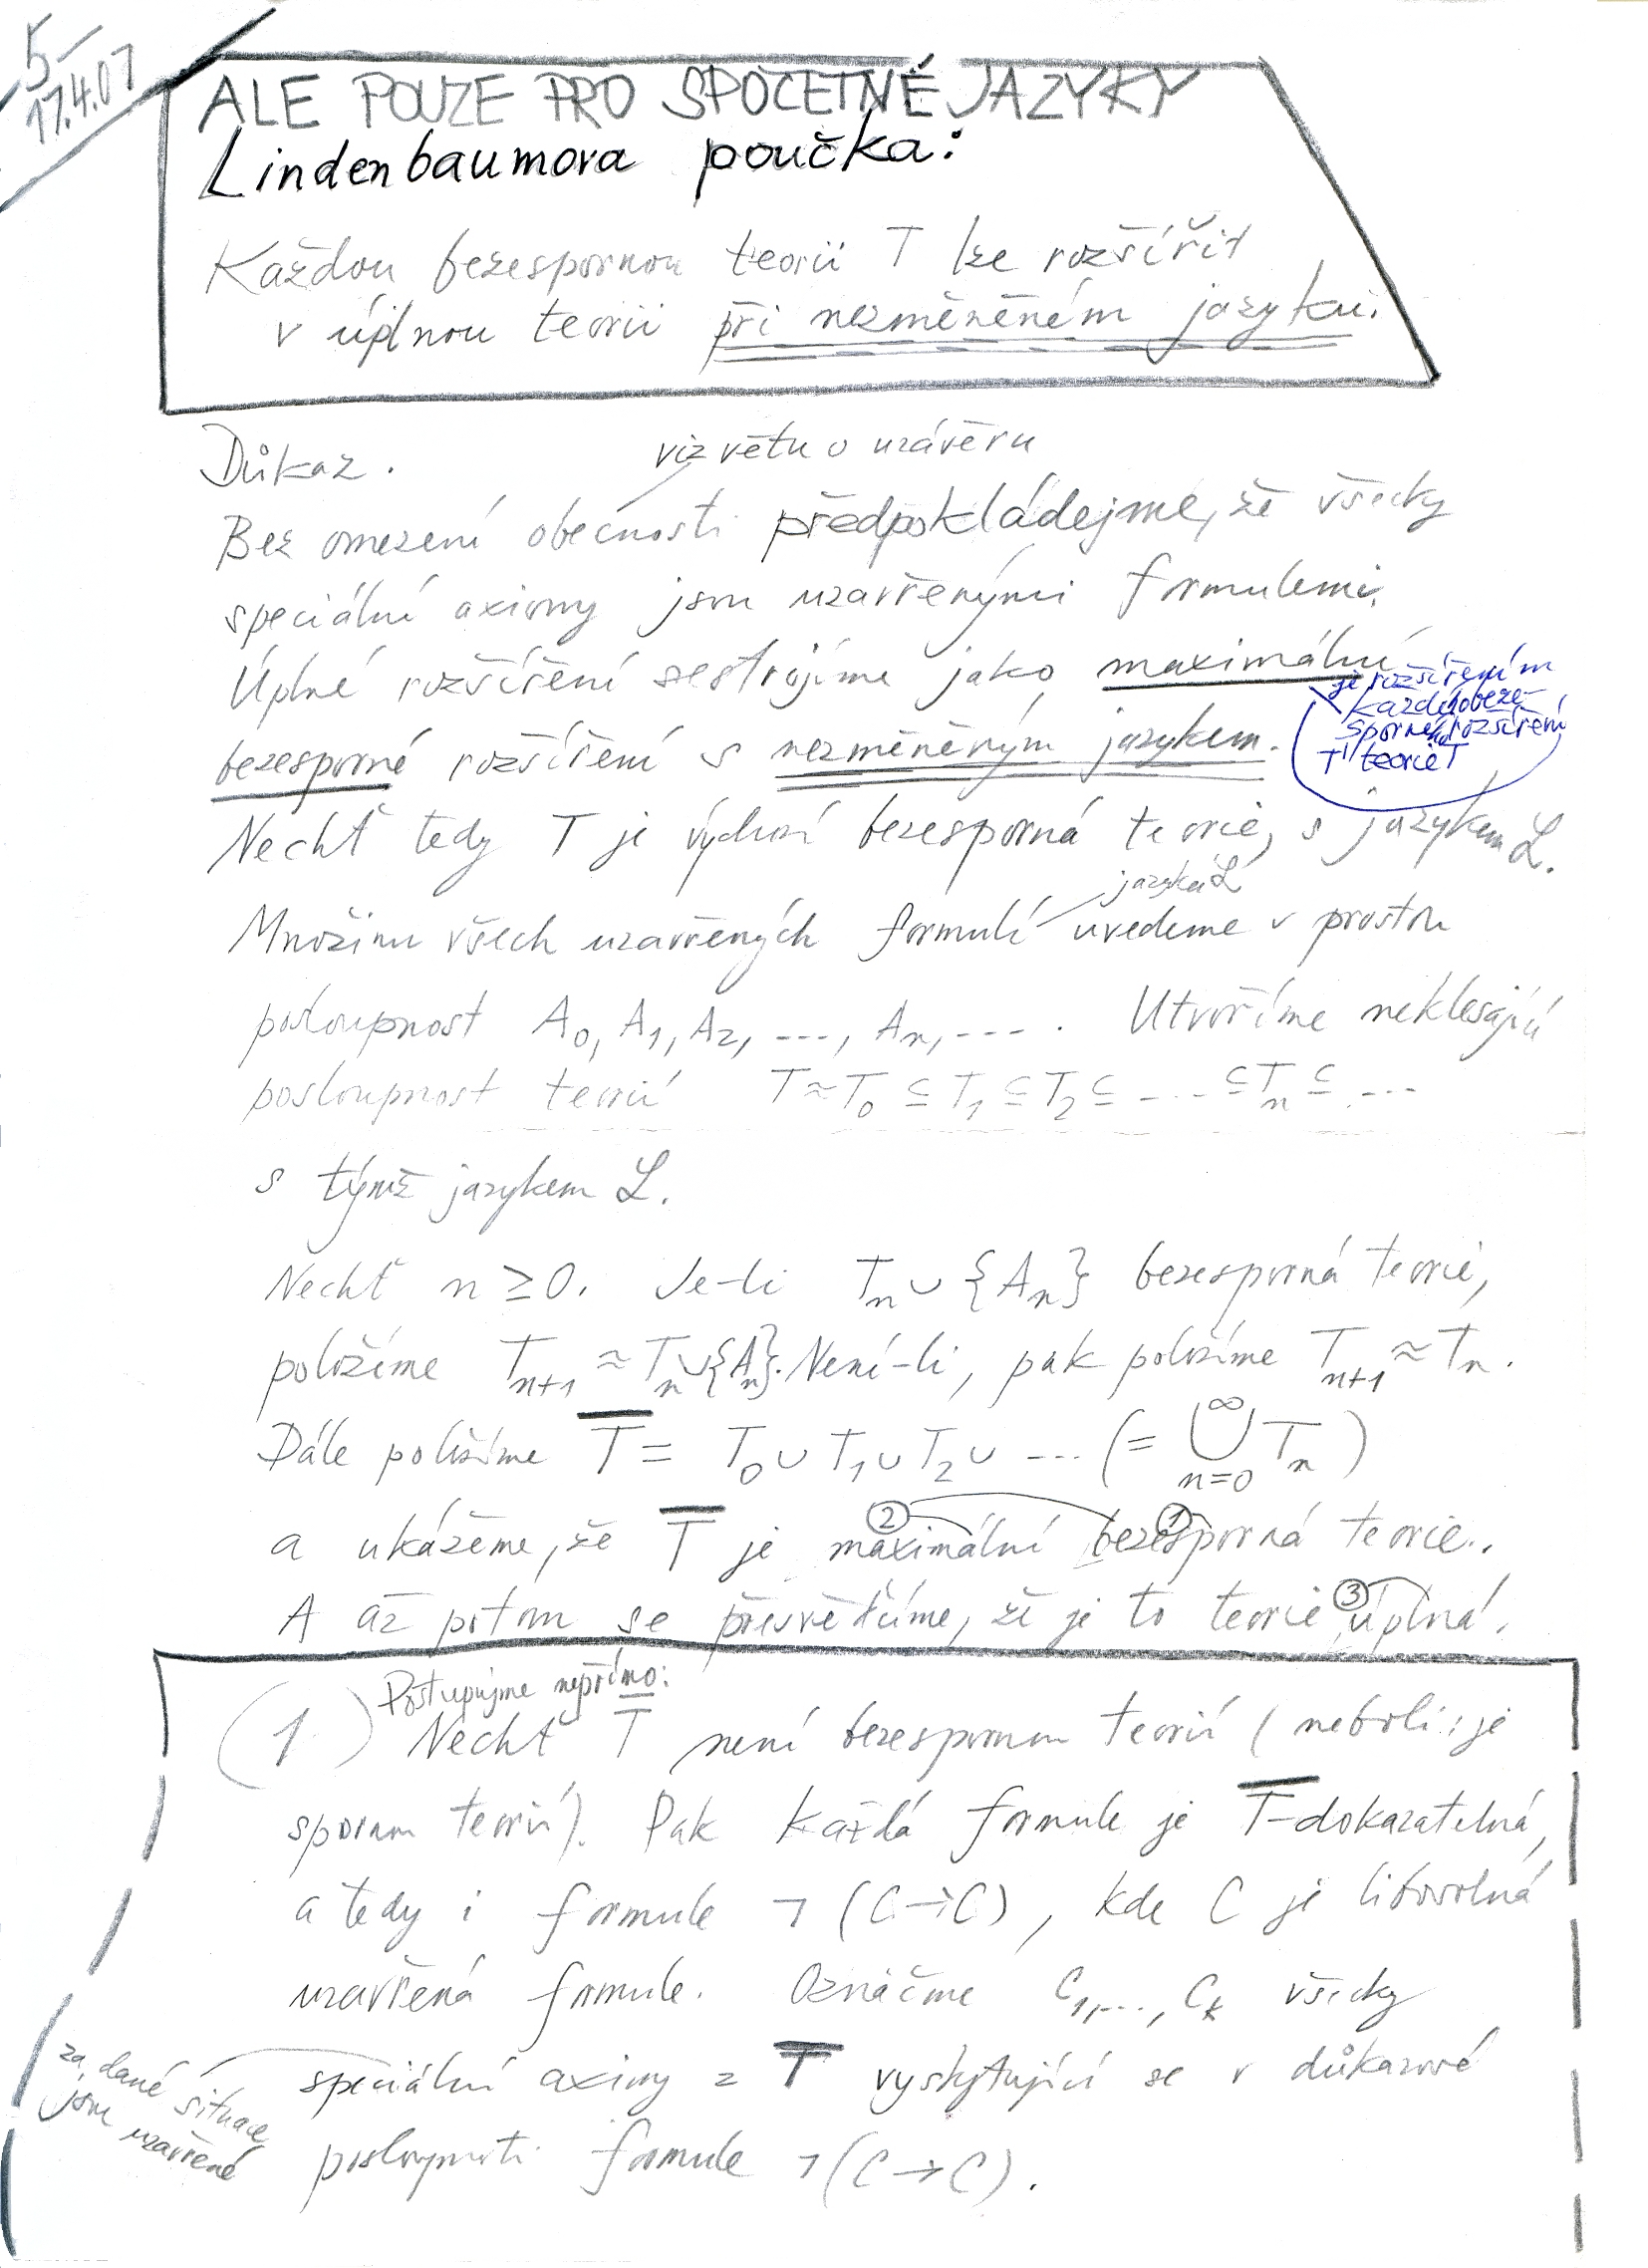 5–
17.4.07
ALE POUZE PRO SPOČETNÉ JAZYKY
Lindenbaumova poučka:
Každou bezespornou teorii T lze rozšířit
v úplnou teorii při nezměněném jazyku.
Důkaz.
viz větu o uzávěru
Bez omezení obecnosti předpokládejme, že všecky
speciální axiomy jsou uzavřenými formulemi.
Úplné rozšíření sestrojíme jako maximální
bezesporné rozšíření s nezměněným jazykem.
je rozšířením
každého beze-
sporného rozšíření
T' teorie T
Nechť tedy T je výchozí bezesporná teorie, s jazykem L.
jazyka L
Množinu všech uzavřených formulí uvedeme v prostou
posloupnost A₀, A₁, A₂, ---, Aₙ, ---. Utvoříme neklesající
posloupnost teorií T ≈ T₀ ⊆ T₁ ⊆ T₂ ⊆ --- ⊆ Tₙ ⊆ ---
s týmž jazykem L.
Nechť n ≥ 0. Je-li Tₙ ∪ {Aₙ} bezesporná teorie,
položíme Tₙ₊₁ ≈ Tₙ ∪ {Aₙ}. Není-li, pak položíme Tₙ₊₁ ≈ Tₙ.
Dále položíme T̅ = T₀ ∪ T₁ ∪ T₂ ∪ --- (= ⋃ₙ₌₀^∞ Tₙ)
② ①
a ukážeme, že T̅ je maximální bezesporná teorie.
A až potom se přesvědčíme, že je to teorie ③ úplná.
Postupujme nepřímo:
(1.) Nechť T̅ není bezespornou teorií (neboli: je
spornou teorií). Pak každá formule je T̅-dokazatelná,
a tedy i formule ¬(C→C), kde C je libovolná
uzavřená formule. Označme C₁, ..., Cₖ všecky
speciální axiomy z T̅ vyskytující se v důkazové
za dané situace
jsou uzavřené
posloupnosti formule ¬(C→C).